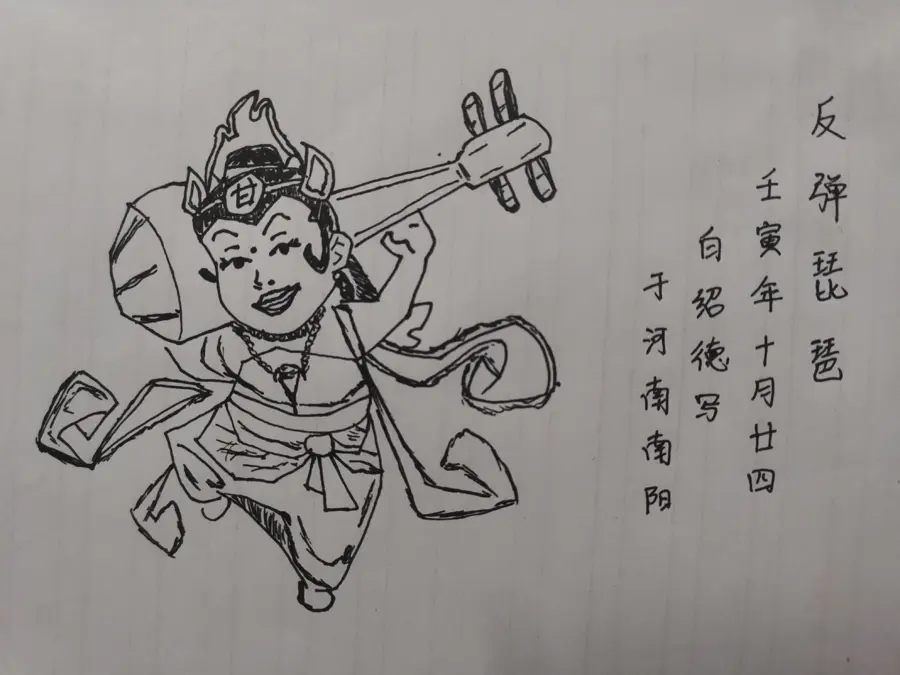 反弹琵琶
壬寅年十月廿四
白绍德写
于河南南阳
甘